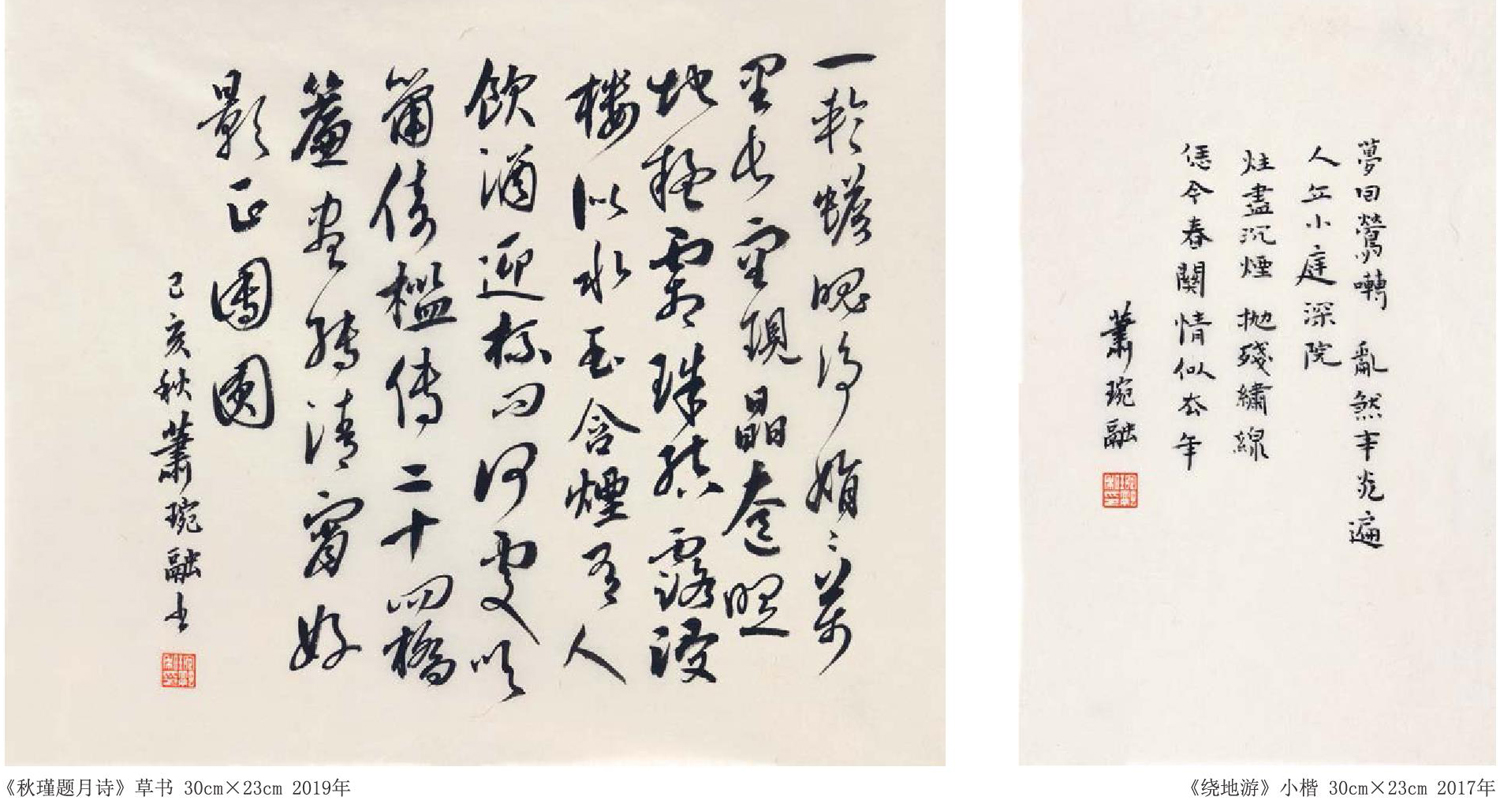 一輪蟾魄净娟〻萬
里長空現晶奩照
地疑霜珠結露浸
樓似水玉含煙有人
飲酒迎杯問何處吹
簫倚檻傳二十四橋
簾盡捲清宵好
影正團圓
己亥秋蕭琬融书
《秋瑾题月诗》草书 30cm×23cm 2019年
夢回鶯囀 亂煞年光遍
人立小庭深院
炷盡沉煙 拋殘繡線
恁今春關情似去年
蕭琬融
《绕地游》小楷 30cm×23cm 2017年